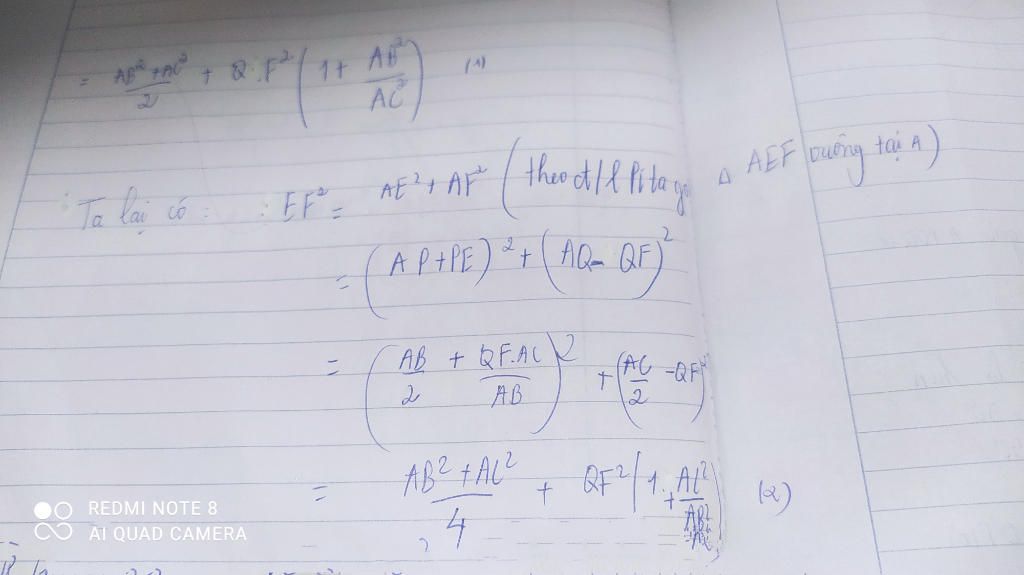 = AB²+AC²/2 + Q.F² (1 + AB²/AC²) (1)
Ta lại có : : EF² = AE² + AF² (theo đ/l Pitago △ AEF vuông tại A)
= (AP+PE)² + (AQ - QF)²
= (AB/2 + QF.AC/AB)² + (AC/2 - QF)²
= AB² + AC²/4 + QF² (1 + AC²/AB² (2)
REDMI NOTE 8
AI QUAD CAMERA